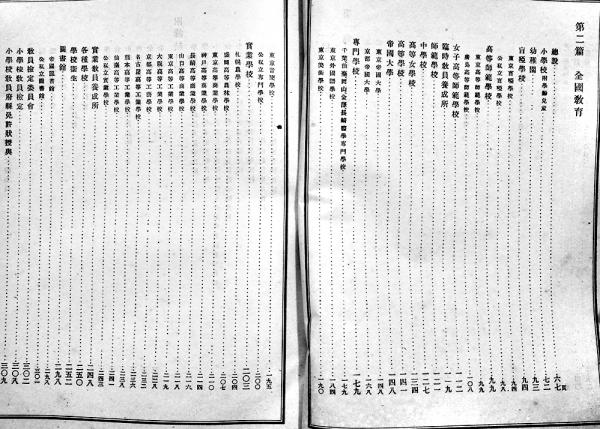 第二篇 全國教育
總說 六七頁
小學校 附學齡兒童 七二
幼稚園 九三
盲啞學校 九四
東京盲啞學校 九四
公私立盲啞學校
高等師範學校 九九
東京高等師範學校 九九
廣島高等師範學校
女子高等師範學校 一一二
臨時教員養成所 一一九
師範學校 一二一
中學校 一二七
高等女學校 一三四
高等學校 一四一
帝國大學 一四八
東京帝國大學 一四八
京都帝國大學 一六八
專門學校 一七九
千葉仙臺岡山金澤長崎醫學專門學校 一七九
東京外國語學校 一八四
東京美術學校 一九〇
東京音樂學校 一九五
公私立專門學校 二〇〇
實業學校 二〇三
札幌農學校 二〇四
盛岡高等農林學校 二〇七
東京高等商業學校 二一〇
神戶高等商業學校 二一四
長崎高等商業學校 二一六
山口高等商業學校
東京高等工業學校
大阪高等工業學校
京都高等工藝學校 二三二
名古屋高等工業學校
熊本高等工業學校 二三八
仙臺高等工業學校 二四一
公私立實業學校 二四三
實業教員養成所 二四八
各種學校 二五〇
學校衛生 二五二
圖書館 二九八
帝國圖書館 二九八
公私立圖書館 三〇一
教員檢定委員會 三〇二
小學校教員檢定 三〇八
小學校教員府縣免許狀授與 三〇九